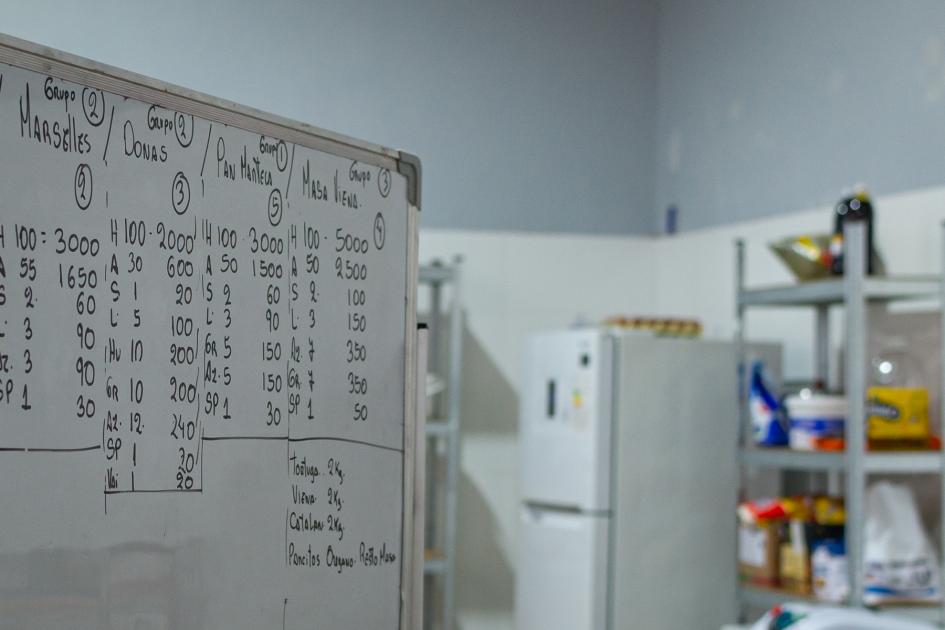 Grupo 2
MARSELLES
2
H 100 = 3000
A 55 1650
S 2. 60
L. 3 90
Az. 3 90
SP 1 30
Grupo 2
DONAS
3
H 100 - 2000
A 30 600
S 1 20
L. 5 100
Hu 10 200
GR 10 200
Az. 12. 240
SP 1 20
Vai 1 20
Grupo 1
PAN MANTECA
5
H 100 - 3000
A 50 1500
S 2 60
L. 3 90
GR 5 150
Az. 5 150
SP 1 30
Grupo 3
MASA VIENA.
4
H 100 - 5000
A 50 2500
S 2. 100
L. 3 150
Az. 7 350
Gr. 7 350
SP 1 50
Tortuga. 2Kg.
Viena 2Kg.
Catalan 2Kg.
Pancitos Oregano. Resto Masa